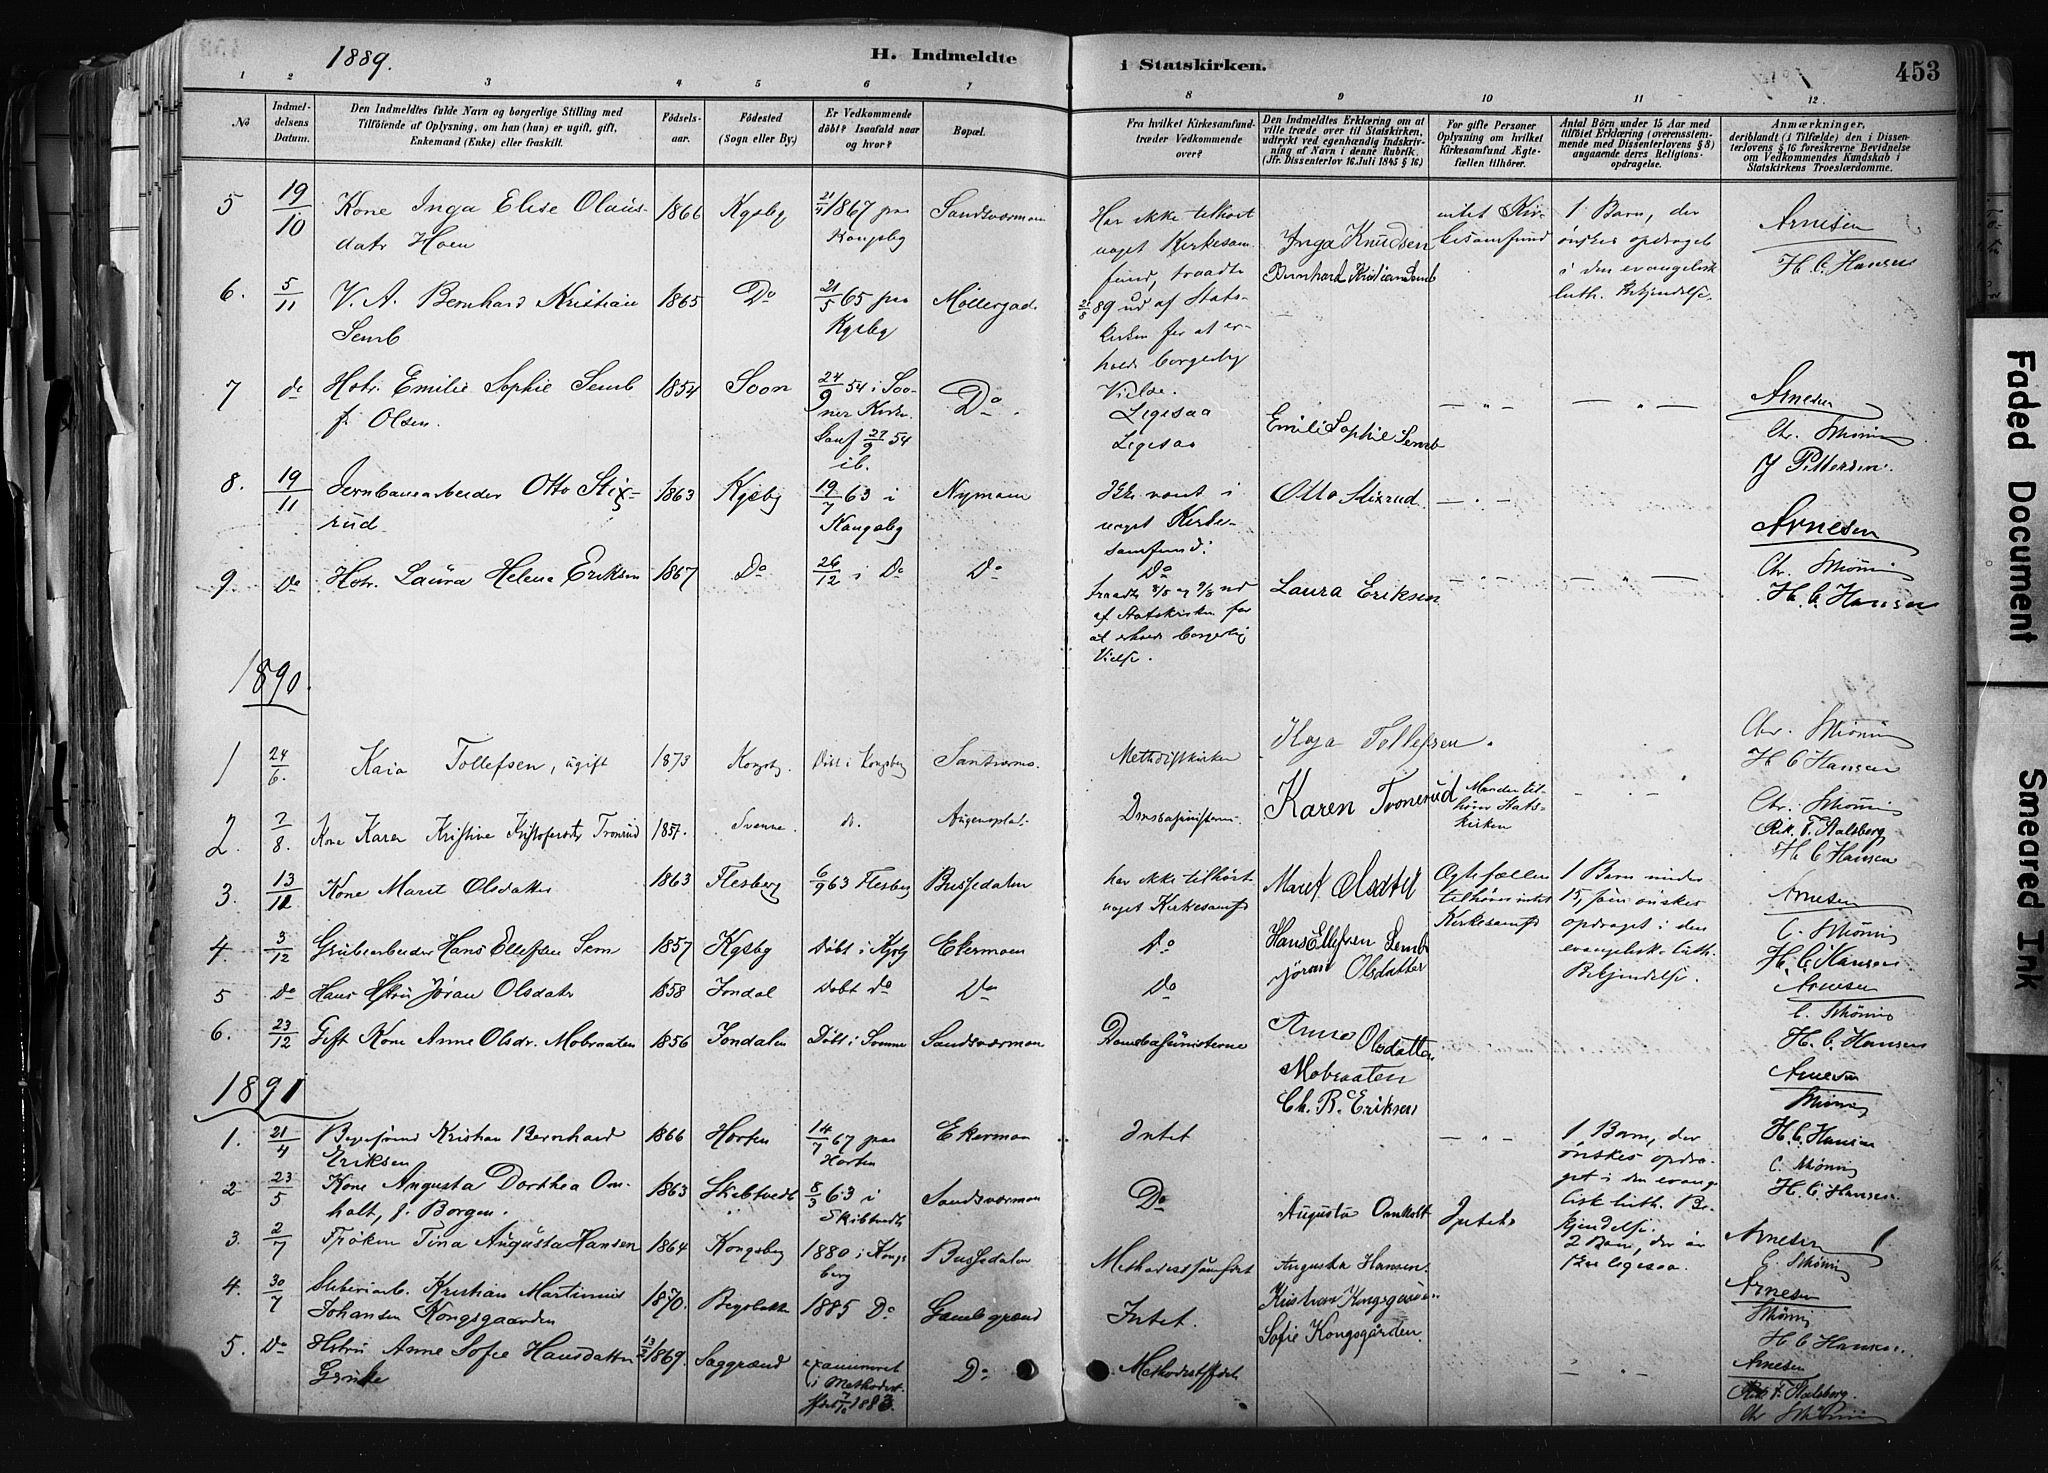 1889.
H. Indmeldte
i Statskirken.
453
1 2 3 4 5 6 7 8 9 10 11 12
No
Indmel-
delsens
Datum.
Den Indmeldtes fulde Navn og borgerlige Stilling med
Tilföiende af Oplysning, om han (hun) er ugift, gift,
Enkemand (Enke) eller fraskilt.
Födsels-
aar.
Födested
(Sogn eller By.)
Er Vedkommende
döbt? Isaafald naar
og hvor?
Bopæl.
Fra hvilket Kirkesamfund
træder Vedkommende
over?
Den Indmeldtes Erklæring om at
ville træde over til Statskirken,
udtrykt ved egenhændig Indskriv-
ning af Navn i denne Rubrik.
(Jfr. Dissenterlov 16. Juli 1845 § 16)
For gifte Personer
Oplysning om hvilket
Kirkesamfund Ægte-
fællen tilhörer.
Antal Börn under 15 Aar med
tilföiet Erklæring (overensstem-
mende med Dissenterlovens § 8)
angaaende deres Religions-
opdragelse.
Anmærkninger,
deriblandt (i Tilfælde) den i Dissen-
terlovens § 16 foreskrevne Bevidnelse
om Vedkommendes Kundskab i
Statskirkens Troeslærdomme.
5 19/10 Kone Inga Elise Olaus-
datr Hoen
1866 Kgsby 1867 paa
Kongsby
Sandsværmoen
Har ikke tilhørt
noget Kirkesam-
fund, traadte
2/8 89 ud af Stats-
kirken for at er-
holde borgerlig
Vielse.
Inga Knudsen
intet Kir-
kesamfund
1 Barn, der
ønskes opdraget
i den evangelisk
luth. Bekjendelse.
Arnesen
H. C. Hansen
6. 5/11 V. A. Bernhard Kristian
Semb
1865 Do 21/5 65 paa
Kgsby
Møllergad.
Bernhard Kristian Semb
7 do Hstr. Emilie Sophie Semb
f. Olsen.
1854 Soon 24/9 54 i Soo-
ner Kirke
ib.
Do.
Ligesaa
Ligesaa
Emilie Sophie Semb
— " — — " —
Arnesen
Chr. Skønn
J Pettersen.
8. 19/11 Jernbanearbeider Otto Stix-
rud
1863 Kgsby 19/7 63 i
Kongsby
Nymoen
Ikke været i
noget Kirke-
samfund.
Otto Stixrud
— " —
Arnesen
9. Do Hstr. Laura Helene Eriksen
1867 Do 26/12 i Do Do
Do
traadte ud
af Statskirken for
at erholde borgerlig
Vielse.
Laura Eriksen
— " — — " —
H. C. Hansen
1890.
1 24/6. Kaia Tollefsen, ugift
1873 Kongsbg. Døbt i Kongsberg Methodistkirken
Kaja Tollefsen.
H C Hansen
2 7/8. Kone Karen Kristine Tronrud
1857. Svenne. do.
Karen Tronerud
Manden til-
hører Stats-
kirken
— " —
Rik. F. Stalsberg
H C Hansen
3. 13/11 Kone Marit Olsdatter
1863 Flesberg 6/9 63 Flesberg Bussedalen
har ikke tilhørt
noget Kirkesamfd
Maret Olsdttr
Ægtefællen
tilhører intet
Kirkesamfd
1 Barn under
15, som ønskes
opdraget i den
evangelisk-luth.
Bekjendelse.
Arnesen
H. C. Hansen
4. 3/12 Grubearbeider Hans Ellefsen Sem
1857 Kgsby Døbt i Kgsby Ekermoen
Do
Hans Ellefsen Semb
5 Do Hans Hstru Jøran Olsdatr
1858 Jondal Døbt do Do
Do
Jøran Olsdatter
Arnesen
6. 23/12 Gift Kone Anne Olsdr. Mobraaten
1856 Jondalen Døbt i Svenne Sandsværmoen
Anne Olsdatter
Mobraaten
H. C. Hansen
1891
1. 21/4 Kristian Bernhard
Eriksen
1866 Horten 14/7 67 paa
Horten
Ekermoen
Intet
Ch. B. Eriksen
— " —
1 Barn, der
ønskes opdra-
get i den evange-
lisk luth. Be-
kjendelse.
Arnesen
H. C. Hansen
2 23/5 Kone Augusta Dorthea Om-
holt, f. Borgen.
1863 Skibtvedt 8/3 63 i
Skibtvedt
Sandsværmoen
Do
Augusta Omholt
Intet
2 Børn
ligesaa.
H. C. Hansen
3. 2/7 Frøken Tina Augusta Hansen
1864 Kongsberg 1880 i Kongs-
berg
Bussedalen
Augusta Hansen.
Arnesen
4. 30/7 Kristian Martinius
Johansen Kongsgaarden
1870. 1885 Do Gamlegrænd
Intet.
Kristian Kongsgaarden
Arnesen
H C Hansen
5. Do Hstru Anne Sofie Hansdatter
1869. Saggrænd
i Methodist-
1883.
Do
Methodistsfdet
Sofie Kongsgården.
" "
Arnesen
Rik F. Stalsberg.
Faded Document
Smeared Ink